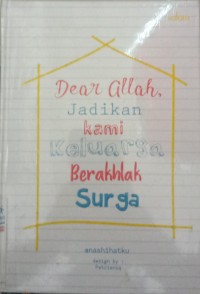 Dear Allah,
Jadikan
kami
Keluarga
Berakhlak
Surga
@nasihatku
design by :